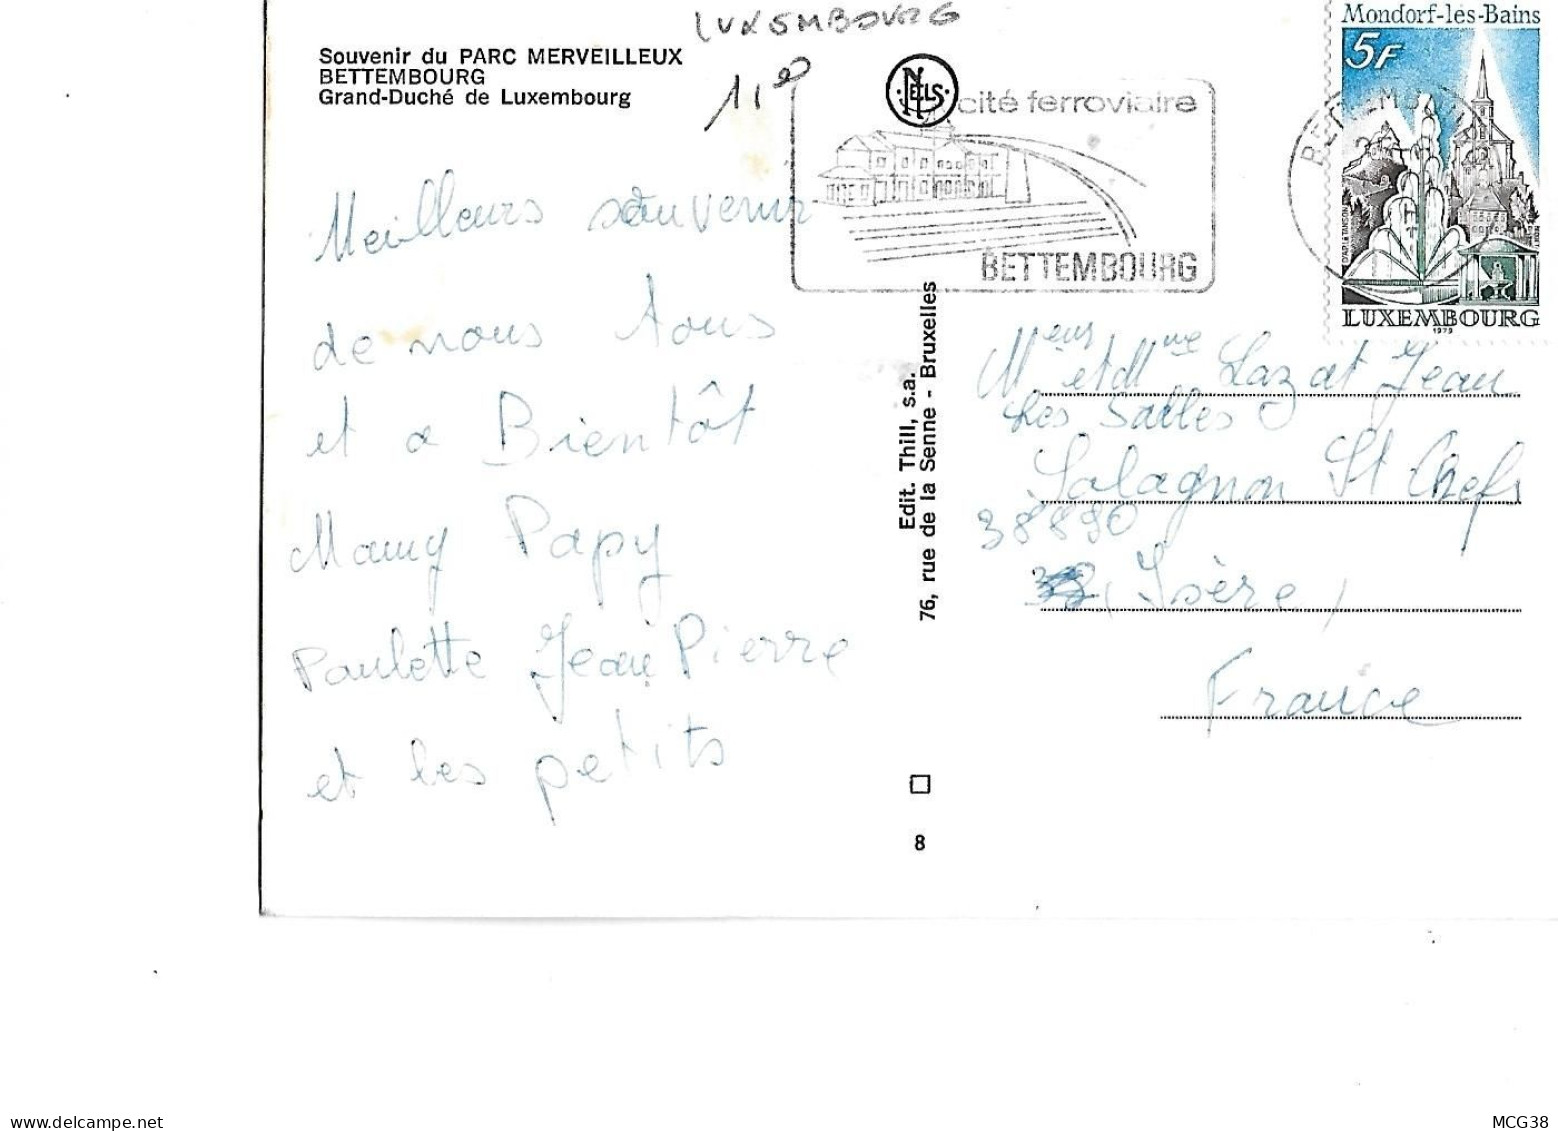 LUXEMBOURG
Souvenir du PARC MERVEILLEUX
BETTEMBOURG
Grand-Duché de Luxembourg
NELS
cité ferroviaire
BETTEMBOURG
Mondorf-les-Bains
5F
LUXEMBOURG
1979
Meilleurs souvenir
de nous tous
et a Bientôt
Mamy Papy
Paulette Jean Pierre
et les petits
Edit. Thill, s.a.
76, rue de la Senne - Bruxelles
8
Meur et Mme Lazat Jean
Les Salles
Salagnon St Chefs
38890
(Isère)
France
www.delcampe.net
MCG38